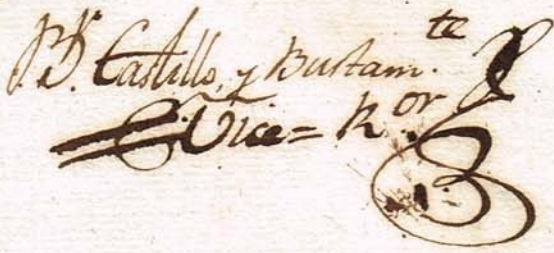 Castillo, y Bustam.te
Vice=R.or